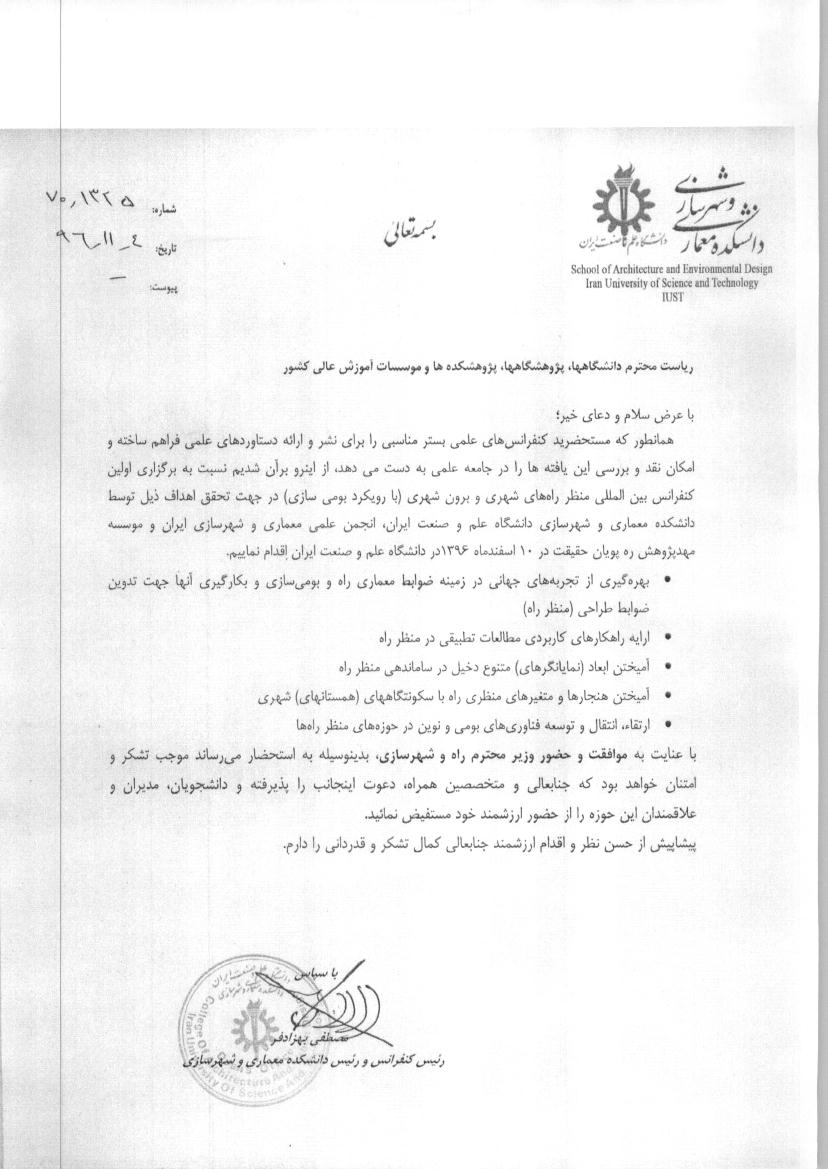 دانشکده معماری
و شهرسازی
دانشگاه علم و صنعت ایران
School of Architecture and Environmental Design
Iran University of Science and Technology
IUST
بسمه تعالی
شماره: ۷۰٫۱۳۲۵
تاریخ: ۹۶_۱۱_۴
پیوست: _
ریاست محترم دانشگاهها، پژوهشگاهها، پژوهشکده ها و موسسات آموزش عالی کشور
با عرض سلام و دعای خیر؛
همانطور که مستحضرید کنفرانس‌های علمی بستر مناسبی را برای نشر و ارائه دستاوردهای علمی فراهم ساخته و
امکان نقد و بررسی این یافته ها را در جامعه علمی به دست می دهد، از اینرو برآن شدیم نسبت به برگزاری اولین
کنفرانس بین المللی منظر راه‌های شهری و برون شهری (با رویکرد بومی سازی) در جهت تحقق اهداف ذیل توسط
دانشکده معماری و شهرسازی دانشگاه علم و صنعت ایران، انجمن علمی معماری و شهرسازی ایران و موسسه
مهدپژوهش ره پویان حقیقت در ۱۰ اسفندماه ۱۳۹۶در دانشگاه علم و صنعت ایران اقدام نماییم.
• بهره‌گیری از تجربه‌های جهانی در زمینه ضوابط معماری راه و بومی‌سازی و بکارگیری آنها جهت تدوین
ضوابط طراحی (منظر راه)
• ارایه راهکارهای کاربردی مطالعات تطبیقی در منظر راه
• آمیختن ابعاد (نمایانگرهای) متنوع دخیل در ساماندهی منظر راه
• آمیختن هنجارها و متغیرهای منظری راه با سکونتگاههای (همستانهای) شهری
• ارتقاء، انتقال و توسعه فناوری‌های بومی و نوین در حوزه‌های منظر راه‌ها
با عنایت به موافقت و حضور وزیر محترم راه و شهرسازی، بدینوسیله به استحضار می‌رساند موجب تشکر و
امتنان خواهد بود که جنابعالی و متخصصین همراه، دعوت اینجانب را پذیرفته و دانشجویان، مدیران و
علاقمندان این حوزه را از حضور ارزشمند خود مستفیض نمائید.
پیشاپیش از حسن نظر و اقدام ارزشمند جنابعالی کمال تشکر و قدردانی را دارم.
با سپاس
مصطفی بهزادفر
رئیس کنفرانس و رئیس دانشکده معماری و شهرسازی